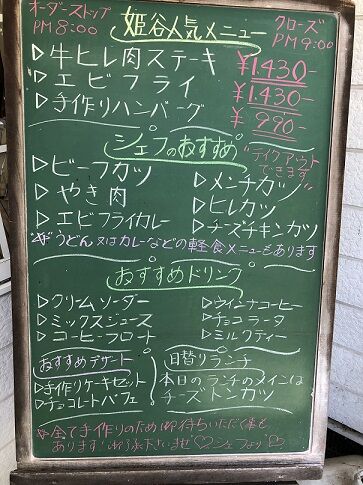 オーダーストップ
PM 8:00
姫谷人気メニュー
クローズ
PM 9:00
▷牛ヒレ肉ステーキ ¥1,430-
▷エビフライ ¥1,430-
▷手作りハンバーグ ¥990-
シェフのおすすめ
"テイクアウトできます"
▷ビーフカツ
▷やき肉
▷エビフライカレー
▷メンチカツ
▷ヒレカツ
▷チーズチキンカツ
うどん又はカレーなどの軽食メニューもあります
おすすめドリンク
▷クリームソーダー
▷ミックスジュース
▷コーヒーフロート
▷ウィンナコーヒー
▷チョコラータ
▷ミルクティー
おすすめデザート
▷手作りケーキセット
▷チョコレートパフェ
日替りランチ
本日のランチのメインは
チーズトンカツ
※全て手作りのため御待ちいただく事も
あります御了承下さいませ♡シェフより♡